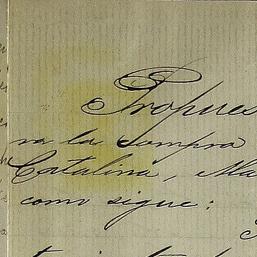 Propues
ra la compra
Catalina, Ma
como sigue: